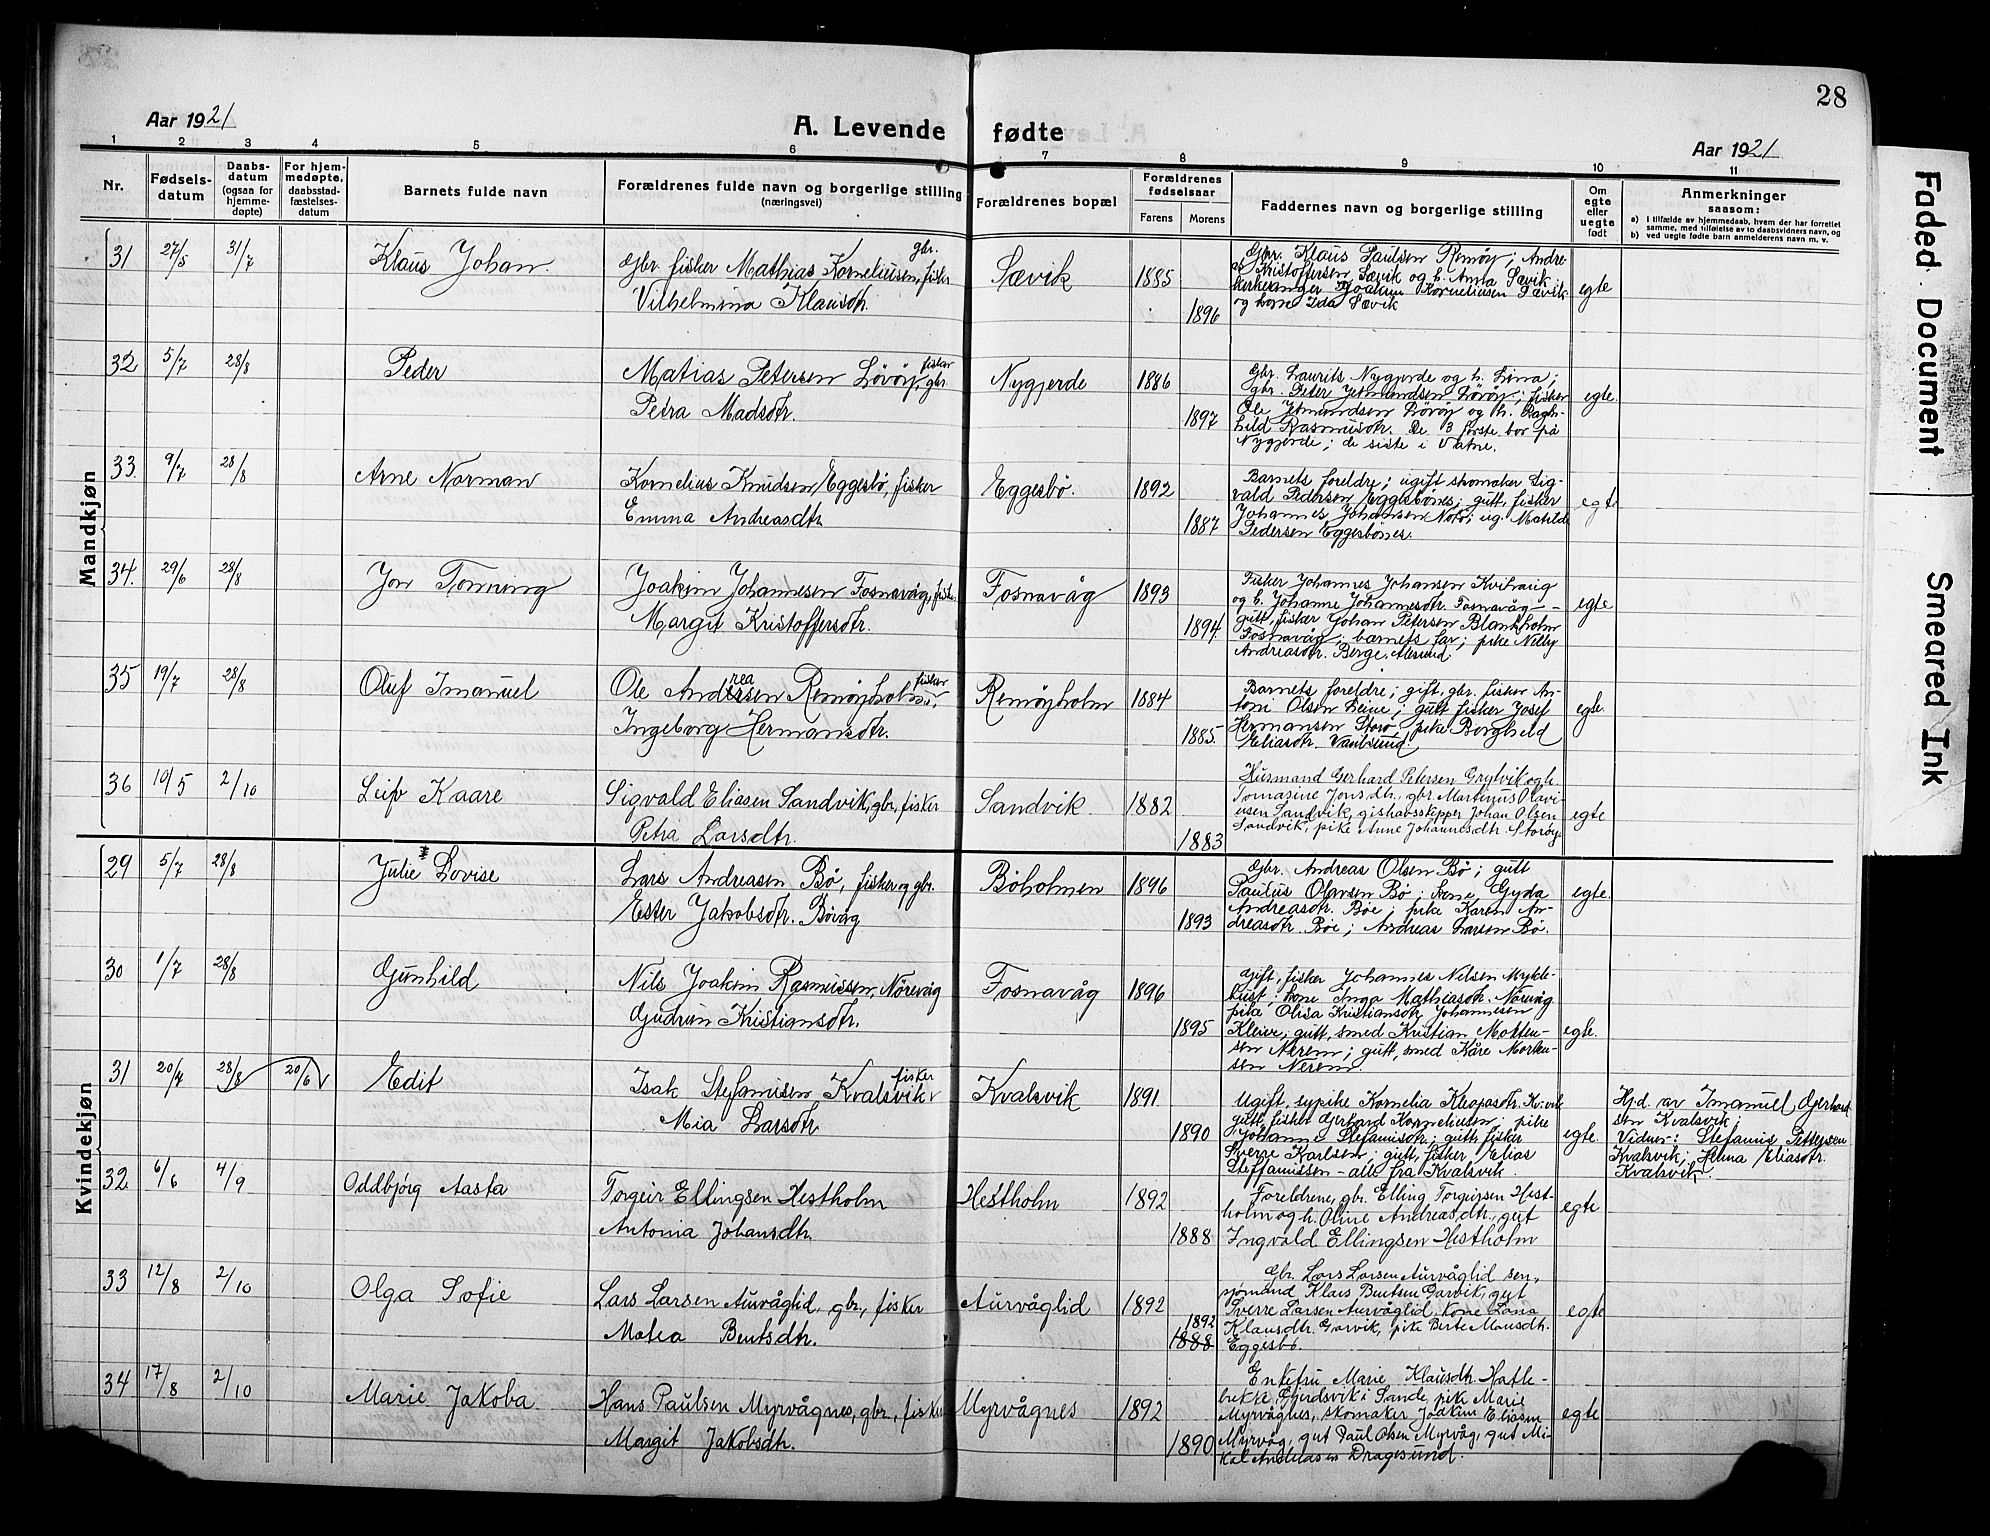 28
Aar 1921
A. Levende fødte
Aar 1921
1 2 3 4 5 6 7 8 9 10 11
Nr.
Fødsels-
datum
Daabs-
datum
(ogsaa for
hjemme-
døpte)
For hjem-
medøpte,
daabsstad-
fæstelses-
datum
Barnets fulde navn
Forældrenes fulde navn og borgerlige stilling
(næringsvei)
Forældrenes bopæl
Forældrenes
fødselsaar
Farens
Morens
Faddernes navn og borgerlige stilling
Om
egte
eller
uegte
født
Anmerkninger
saasom:
a) I tilfælde av hjemmedaab, hvem der har forrettet
samme, med tilføielse av to daabsvidners navn, og
b) ved uegte fødte barn anmelderens navn m. v.
Mandkjøn
31 27/5 31/7 Klaus Johan.
Gbr. fisker Mathias Korneliussen, gbr. fisker
Vilhelmina Klausdtr.
Sævik 1885
1896
Gbr. Klaus Paulsen Remøy; Andre-
as Kristoffersen Sævik og h. Anna Sævik
kirkesanger Joakim Korneliusen Sævik
og kone Ida Sævik
egte
32 5/7 28/8 Peder
Matias Petersen Løvøy, fisker gbr.
Petra Madsdtr.
Nygjerde 1886
1897
Gbr. Laurits Nygjerde og h. Lina;
gbr. Peter Jetmundsen Løvøy; fisker
Ole Jetmundsen Løvøy og h. Ragn-
hild Rasmusdtr. De 3 første bor på
Nygjerde; de siste i Vatne.
egte
33 9/7 28/8 Arne Norman
Kornelius Knudsen Eggesbø, fisker
Emma Andreasdtr
Eggesbø. 1892
1887
Barnets foreldre; ugift skomaker Sig-
vald Pedersen Eggesbønes; gutt, fisker
Johannes Johansen Notø; ug. Matilde
Pedersen Eggesbønes.
egte
34. 29/6 28/8 Jon Tonning
Joakim Johannesen Fosnavåg, fisker
Margit Kristoffersdtr.
Fosnavåg 1893
1894
Fisker Johannes Johansen
og h. Johanne Johannesdtr. Fosnavåg –
gutt, fisker Johan Petersen Blankholm
Fosnavåg; barnets far; pike Nelly
Andreasdtr. Berge, Ålesund.
egte
35 19/7 28/8 Oluf Imanuel
Ole Andreasen Remøyholm fisker
Ingeborg Hermansdtr.
Remøyholm 1884
1885.
Barnets foreldre; gift, gbr. fisker An-
ton Olsen Leine; gutt fisker Josef
Hermansen Storø, pike Borghild
Eliasdtr.
egte.
36 10/5 2/10 Leif Kaare
Sigvald Eliasen Sandvik, gbr, fisker
Petra Larsdtr.
Sandvik 1882
1883
Husmand Gerhard Petersen Grytvik og h.
Tomasine Jonsdtr., gbr Martinus Olavi-
usen Sandvik, Johan Olsen
Sandvik, pike Anne Johannesdtr. Storøy
egte
Kvindekjøn
29 5/7 28/8 Julie Lovise
Lars Andreasen Bø, fisker og gbr.
Ester Jakobsdtr. Bøvåg
Bøholmen 1896
1893
Gbr. Andreas Olsen Bø; gutt
Paulus Olavsen Bø; kone Gyda
Andreasdtr. Bøe; pike Karen An-
dreasdtr. Bøe; Andreas Larsen Bø.
egte.
30 1/7 28/8 Gunhild
Nils Joakim Rasmussen, Nørevåg
Gudrun Kristiansdtr.
Fosnavåg 1896
1895
Gift, fisker Johannes Nilsen Mykle-
bust; kone Inga Mathiasdtr. Nørvåg
pike Olisa Kristiansdtr. Johannesen
Kleive; gutt, smed Kristian Morten-
sen Nerem; gutt, smed Kåre Morten-
sen Nerem.
egte.
31 20/4 28/8 20/6 Edit
Isak Stefanusen Kvalsvik fisker
Mia Larsdtr
Kvalsvik 1891
1890
Ugift, sypike Kornelia Kleopasdtr. Kv.vik
gutt, fisker Gerhard Korneliusen, pike
Johanne Stefanusdtr; gutt, fisker
Sverre Karlsen; gutt, fisker Elias
Steffanussen – alle fra Kvalsvik.
egte.
Hj.d. av Imanuel Gerhard-
sen Kvalsvik;
Vidner: Stefanus Pettersen
Kvalsvik; Helma Eliasdtr.
Kvalsvik.
32 6/6 4/9 Oddbjørg Aasta
Torgeir Ellingsen Hestholm
Antonia Johansdtr.
Hestholm 1892
1888
Foreldrene, gbr. Elling Torgeirsen Hest-
holm og h. Oline Andreasdtr., gut
Ingvald Ellingsen Hestholm
egte
33 12/8 2/10 Olga Sofie
Lars Larsen Aurvåglid, gbr., fisker
Matea Bentsdtr.
Aurvåglid 1892
1892
1888
Gbr. Lars Larsen Aurvåglid sen.,
sjømand Klaus Bentsen Garvik, gut
Sverre Larsen Aurvåglid, Kone Lana
Klausdtr. Garvik, pike Berte Monsdtr.
Eggesbø.
egte
34 17/8 2/10 Marie Jakoba
Hans Paulsen Myrvågnes, gbr., fisker
Margit Jakobsdtr.
Myrvågnes 1892
1890
Enkefru Marie Klausdtr. Hatle-
brekke, Gjerdsvik i Sande, pike Marie
Myrvågnes, skomaker Joakim Eliasen
Myrvåg, gut Paul Olsen Myrvåg, gut Mi-
kal Andreasen Dragesund.
egte
Faded Document
Smeared Ink